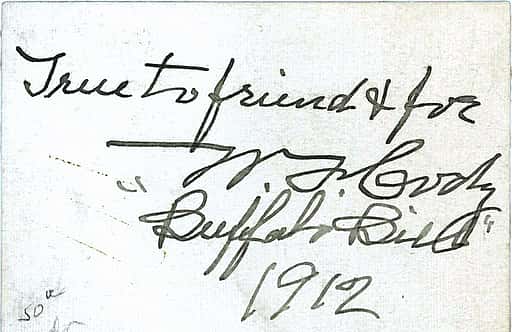 True to friend & foe
W. F. Cody
"Buffalo Bill"
1912
50